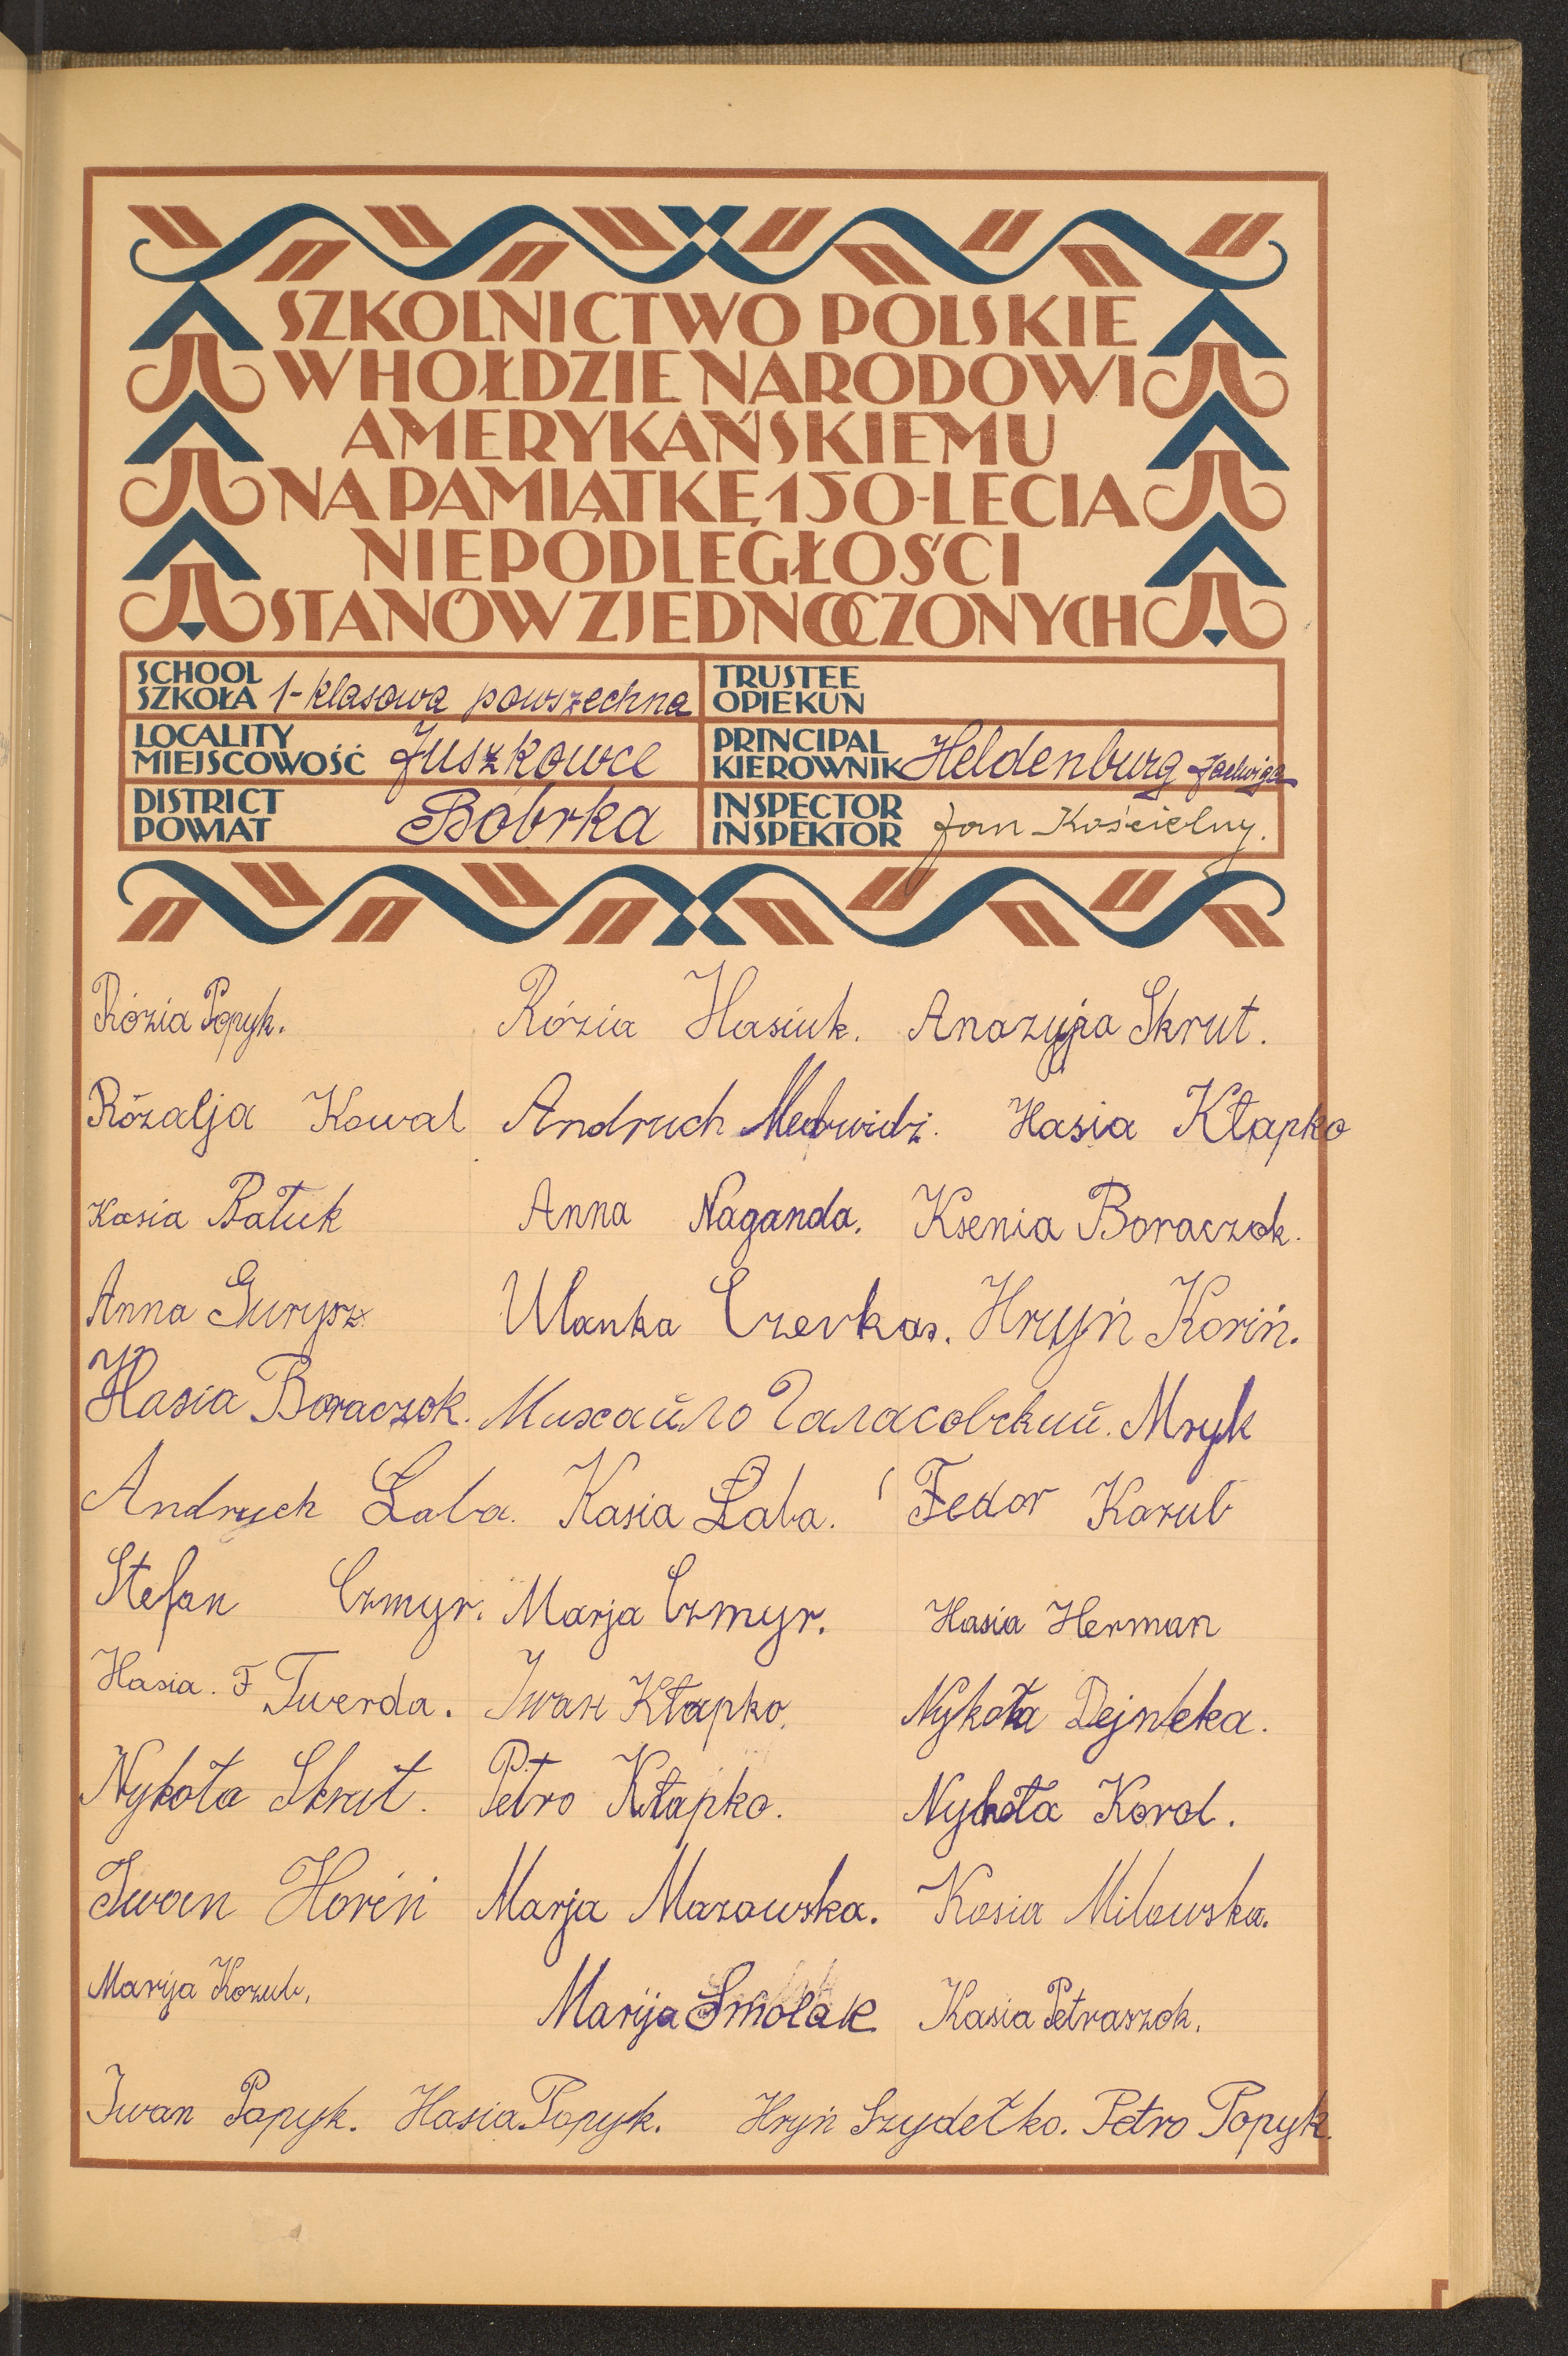 SZKOLNICTWO POLSKIE
W HOŁDZIE NARODOWI
AMERYKAŃSKIEMU
NA PAMIĄTKĘ 150-LECIA
NIEPODLEGŁOŚCI
STANÓW ZJEDNOCZONYCH
SCHOOL
SZKOŁA 1-klasowa powszechna
TRUSTEE
OPIEKUN
LOCALITY
MIEJSCOWOŚĆ Juszkowce
PRINCIPAL
KIEROWNIK Heldenburg Jadwiga
DISTRICT
POWIAT Bóbrka
INSPECTOR
INSPEKTOR Jan Kościelny.
Rózia Popyk. Rózia Hasiuk. Anazyja Skrut.
Rózalja Kowal Andruch Medwidź. Hasia Kłapko
Kasia Bałuk Anna Naganda. Ksenia Boraczok.
Anna Ulanka Czerkas. Hryń Koriń.
Hasia Boraczok. Михайло Галасовский. Mryk
Andruch Łaba. Kasia Łaba. Fedor Kozub
Stefan Czmyr. Marja Czmyr. Hasia Herman
Hasia. F Twerda. Iwan Kłapko. Nykoła Dejneka.
Nykoła Skrut. Petro Kłapko. Nykoła Korol.
Iwan Horiń Marja Mazowska. Kasia Milowska.
Marija Kozub. Marija Smolak Kasia Petraszok.
Iwan Popyk. Hasia Popyk. Hryń Szydełko. Petro Popyk.